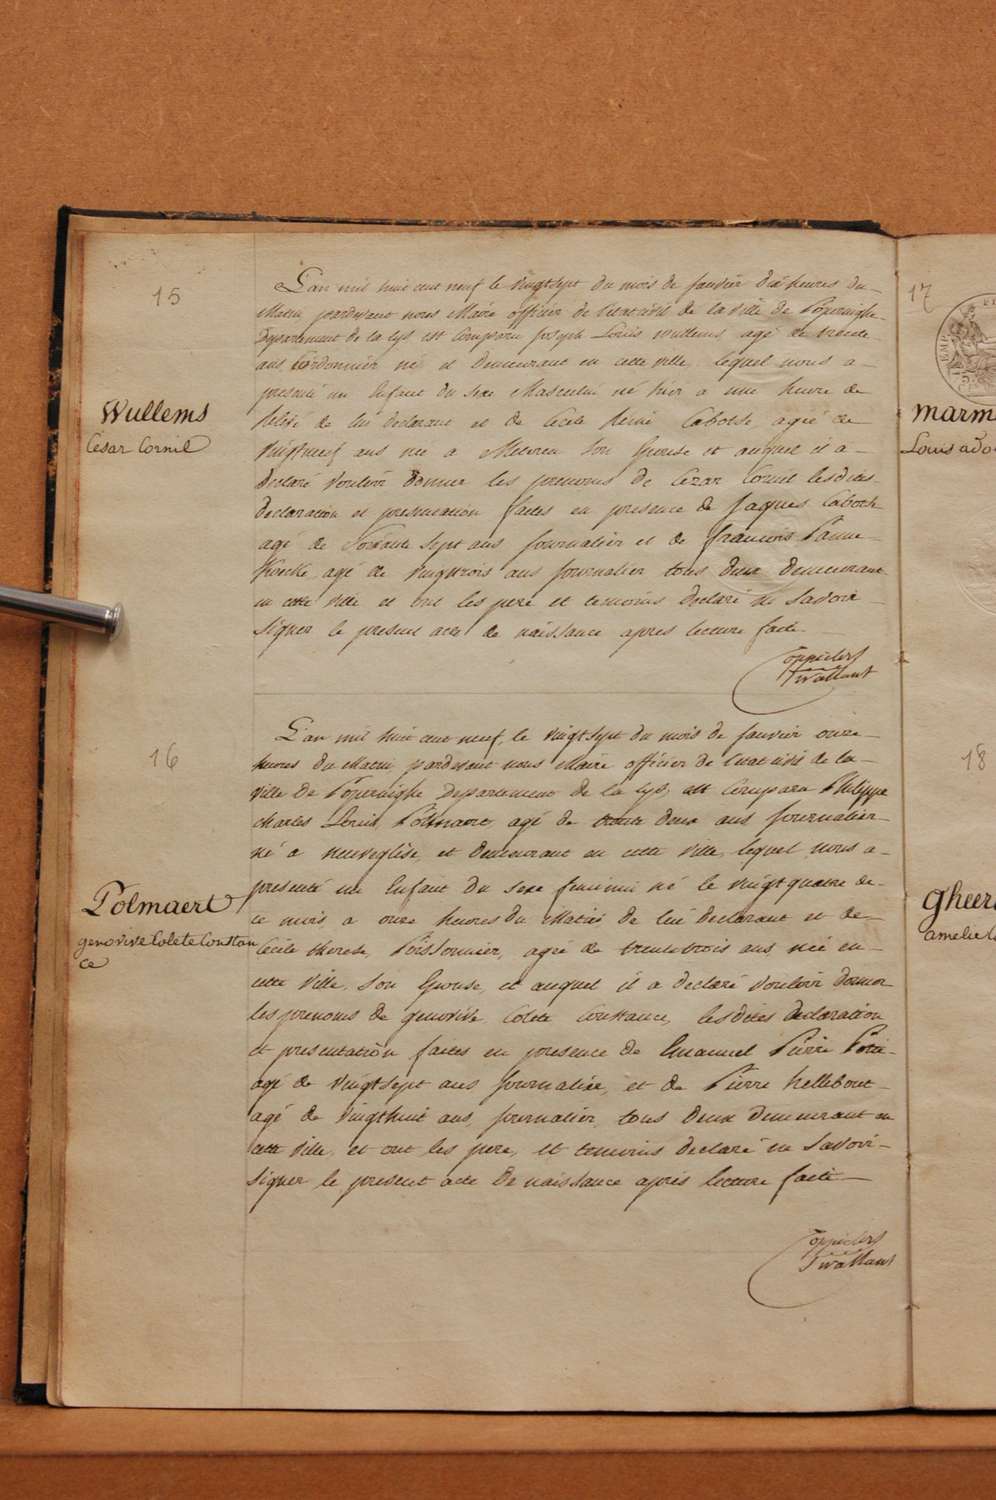 15
Wullems
César Cornil
L'an mil huit cent neuf le vingtsept du mois de janvier dix heures du
Matin pardevant nous Maire officier de l'etat civil de la ville de Poperinghe
Departement de la Lys est Comparu Joseph Louis Wullems, agé de trente
ans Cordonnier né et demeurant en cette ville, lequel nous a
presenté un Enfant du sexe Masculin né hier a une heure de
relevé de lui declarant et de Cecile Reine Cabotse, agée de
vingtneuf ans née a Meteren Son Epouse et auquel il a
declaré vouloir donner les prenoms de Cezar Cornil lesdites
declaration et presentation faites en presence de Jaques Caboth
agé de Soixante Sept ans journalier et de francois Panne
Koecke, agé de vingttrois ans journalier tous deux demeurant
en cette ville et ont les pere et temoins declaré ne Savoir
Signer le present acte de naissance apres lecture faite
16
Polmaert
genovive Colete Constan
ce
L'an mil huit cent neuf, le vingtsept du mois de janvier onze
heures du Matin pardevant nous Maire officier de l'etat civil de la
ville de Poperinghe Departement de la Lys, est Comparu Philippe
Charles Louis Polmaert, agé de trente deux ans journalier
né a neuveglise, et demeurant en cette ville, lequel nous a
presenté un Enfant du sexe feminin né le vingt quatre de
ce mois, a onze heures du Matin de lui declarant et de
Cecile therese, Poissonnier, agée de trente trois ans, née en
cette ville, Son Epouse, et auquel il a declaré vouloir donner
les prenoms de genovive, Colete Constance, lesdites declaration
et presentation faites en presence de Emanuel Pierre
agé de vingtsept ans journalier, et de Pierre hellebout
agé de vingthuit ans, journalier, tous deux demeurant en
cette ville, et ont les pere, et temoins declaré ne Savoir
Signer le present acte de naissance après lecture faite
17
Louis
18
amelie